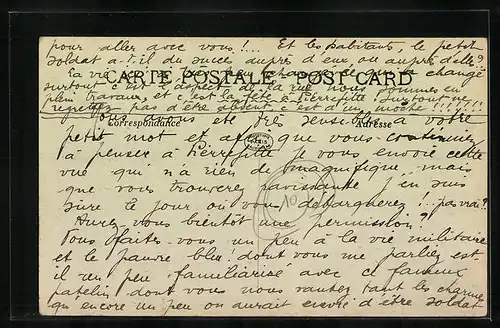 pour aller avec vous !... Et les habitants, le petit
soldat a-t-il du succès auprès d'eux, ou auprès d'elles ?
La vie change
CARTE POSTALE - POST CARD
surtout c'est l'aspect de la rue nous sommes en
plein travaux, et c'est la fête à Pierrefitte ! surtout ne
regrettez pas d'être absent, c'est d'un moche !!!!!!!
Correspondance Adresse
Nous avons été très sensibles à votre
petit mot et afin que vous continuiez
à penser à Pierrefitte je vous envoie cette
vue qui n'a rien de magnifique mais
que vous trouverez ravissante j'en suis
sûre le jour où vous débarquerez !... pas vrai ?
Aurez-vous bientôt une permission ?
Vous faites-vous un peu à la vie militaire
et le pauvre bleu dont vous me parliez est
il un peu familiarisé avec ce fameux
patelin dont vous nous vantez tant les charmes
qu'encore un peu on aurait envie d'être soldat
10